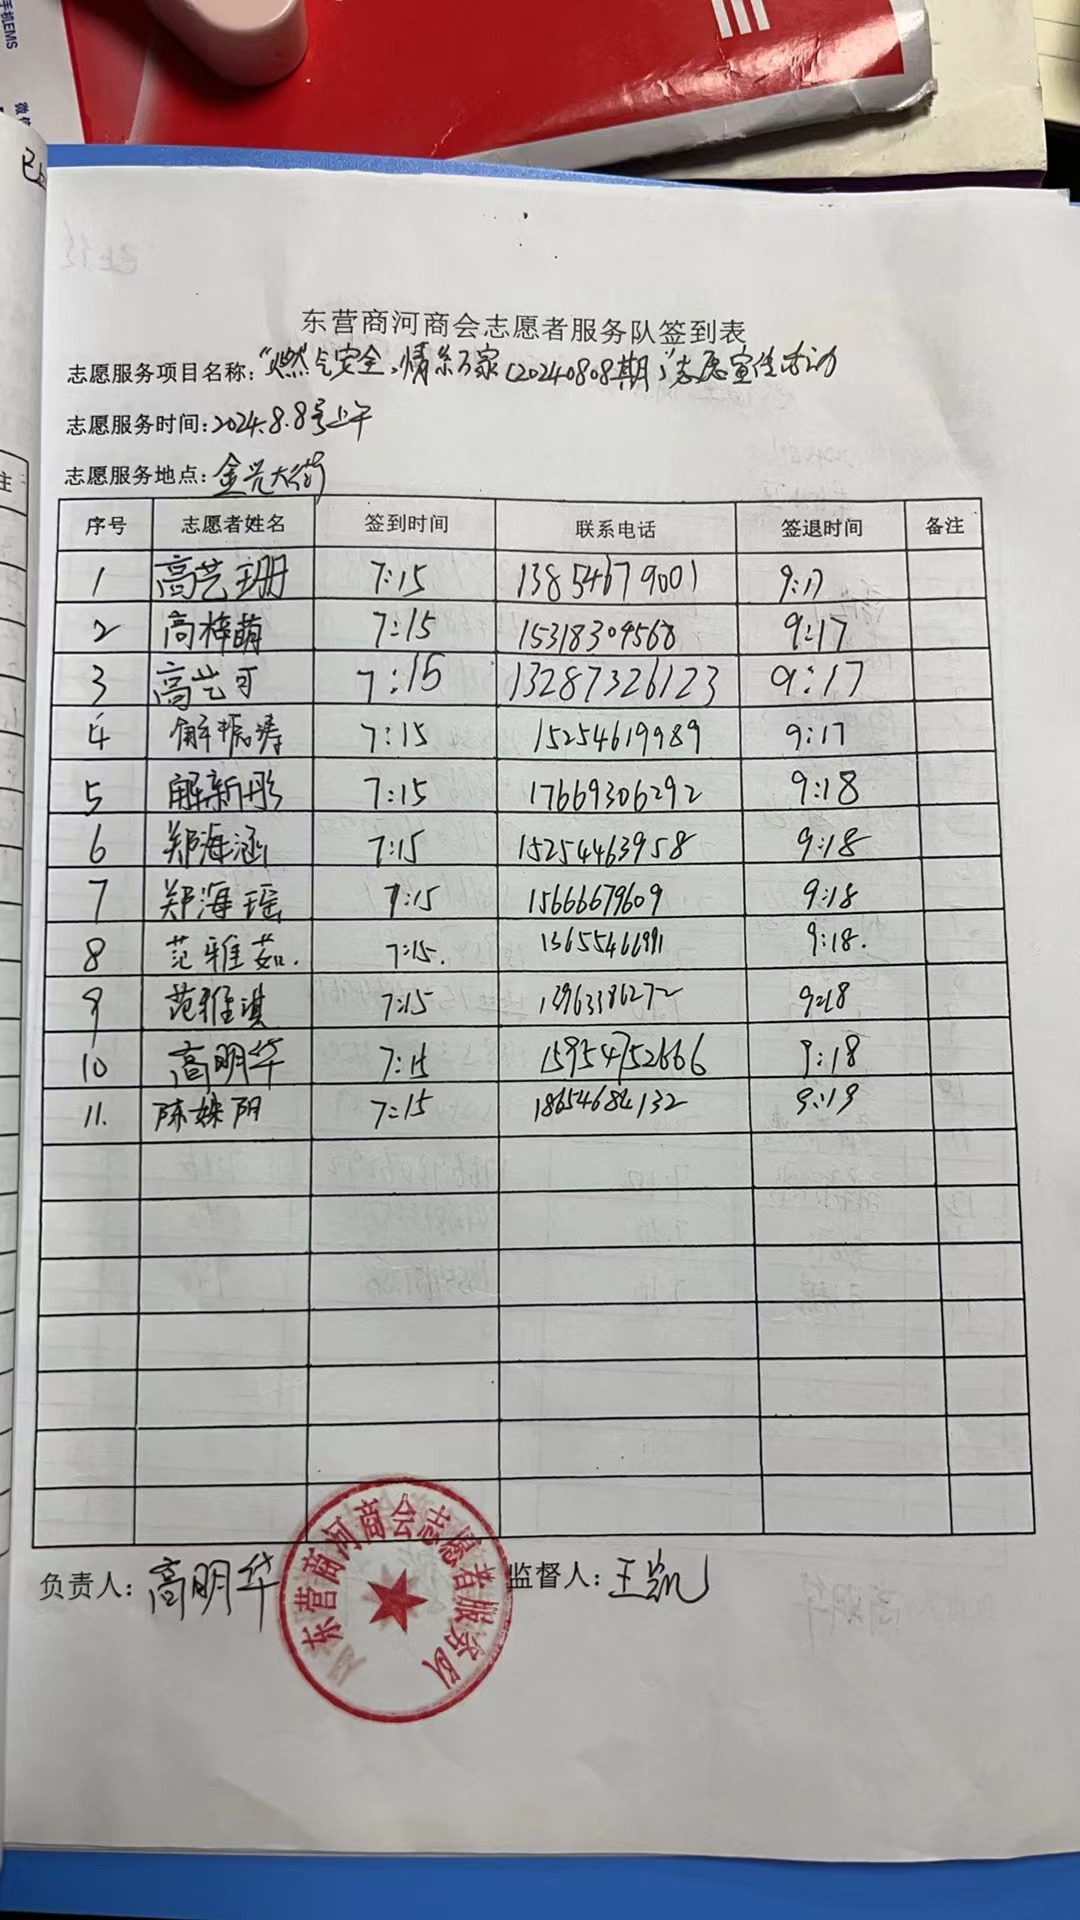 手机EMS
东营商河商会志愿者服务队签到表
志愿服务项目名称:“燃气安全,情系万家(20240808期)”志愿宣传活动
志愿服务时间:2024.8.8号上午
志愿服务地点:金光大街
序号 志愿者姓名 签到时间 联系电话 签退时间 备注
1 高艺珊 7:15 13854679001 9:17
2 高梓萌 7:15 15318304568 9:17
3 高艺可 7:15 13287326123 9:17
4 解振涛 7:15 15254619989 9:17
5 解新彤 7:15 17669306292 9:18
6 郑海涵 7:15 15254463958 9:18
7 郑海瑶 7:15 15666679609 9:18
8 范雅茹. 7:15. 9:18.
9 范雅淇 7:15 13963386272 9:18
10 高明华 7:15 15954752666 9:18
11. 陈姝阴 7:15 18654684132 9:19
负责人:高明华 监督人:王凯
东营商河商会志愿者服务队